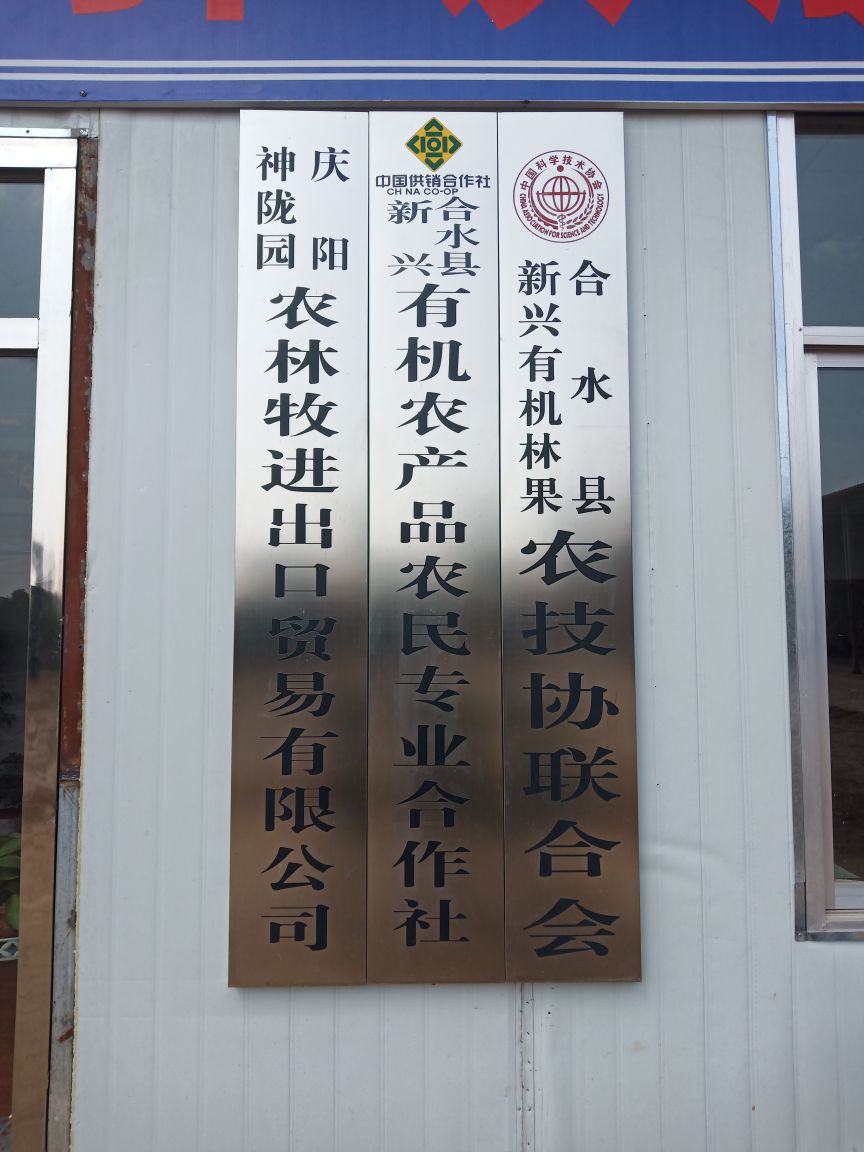 庆阳
神陇园
农林牧进出口贸易有限公司
中国供销合作社
CH NA CO-OP
合水县
新兴
有机农产品农民专业合作社
中国科学技术协会
CHINA ASSOCIATION FOR SCIENCE AND TECHNOLOGY
合水县
新兴有机林果
农技协联合会